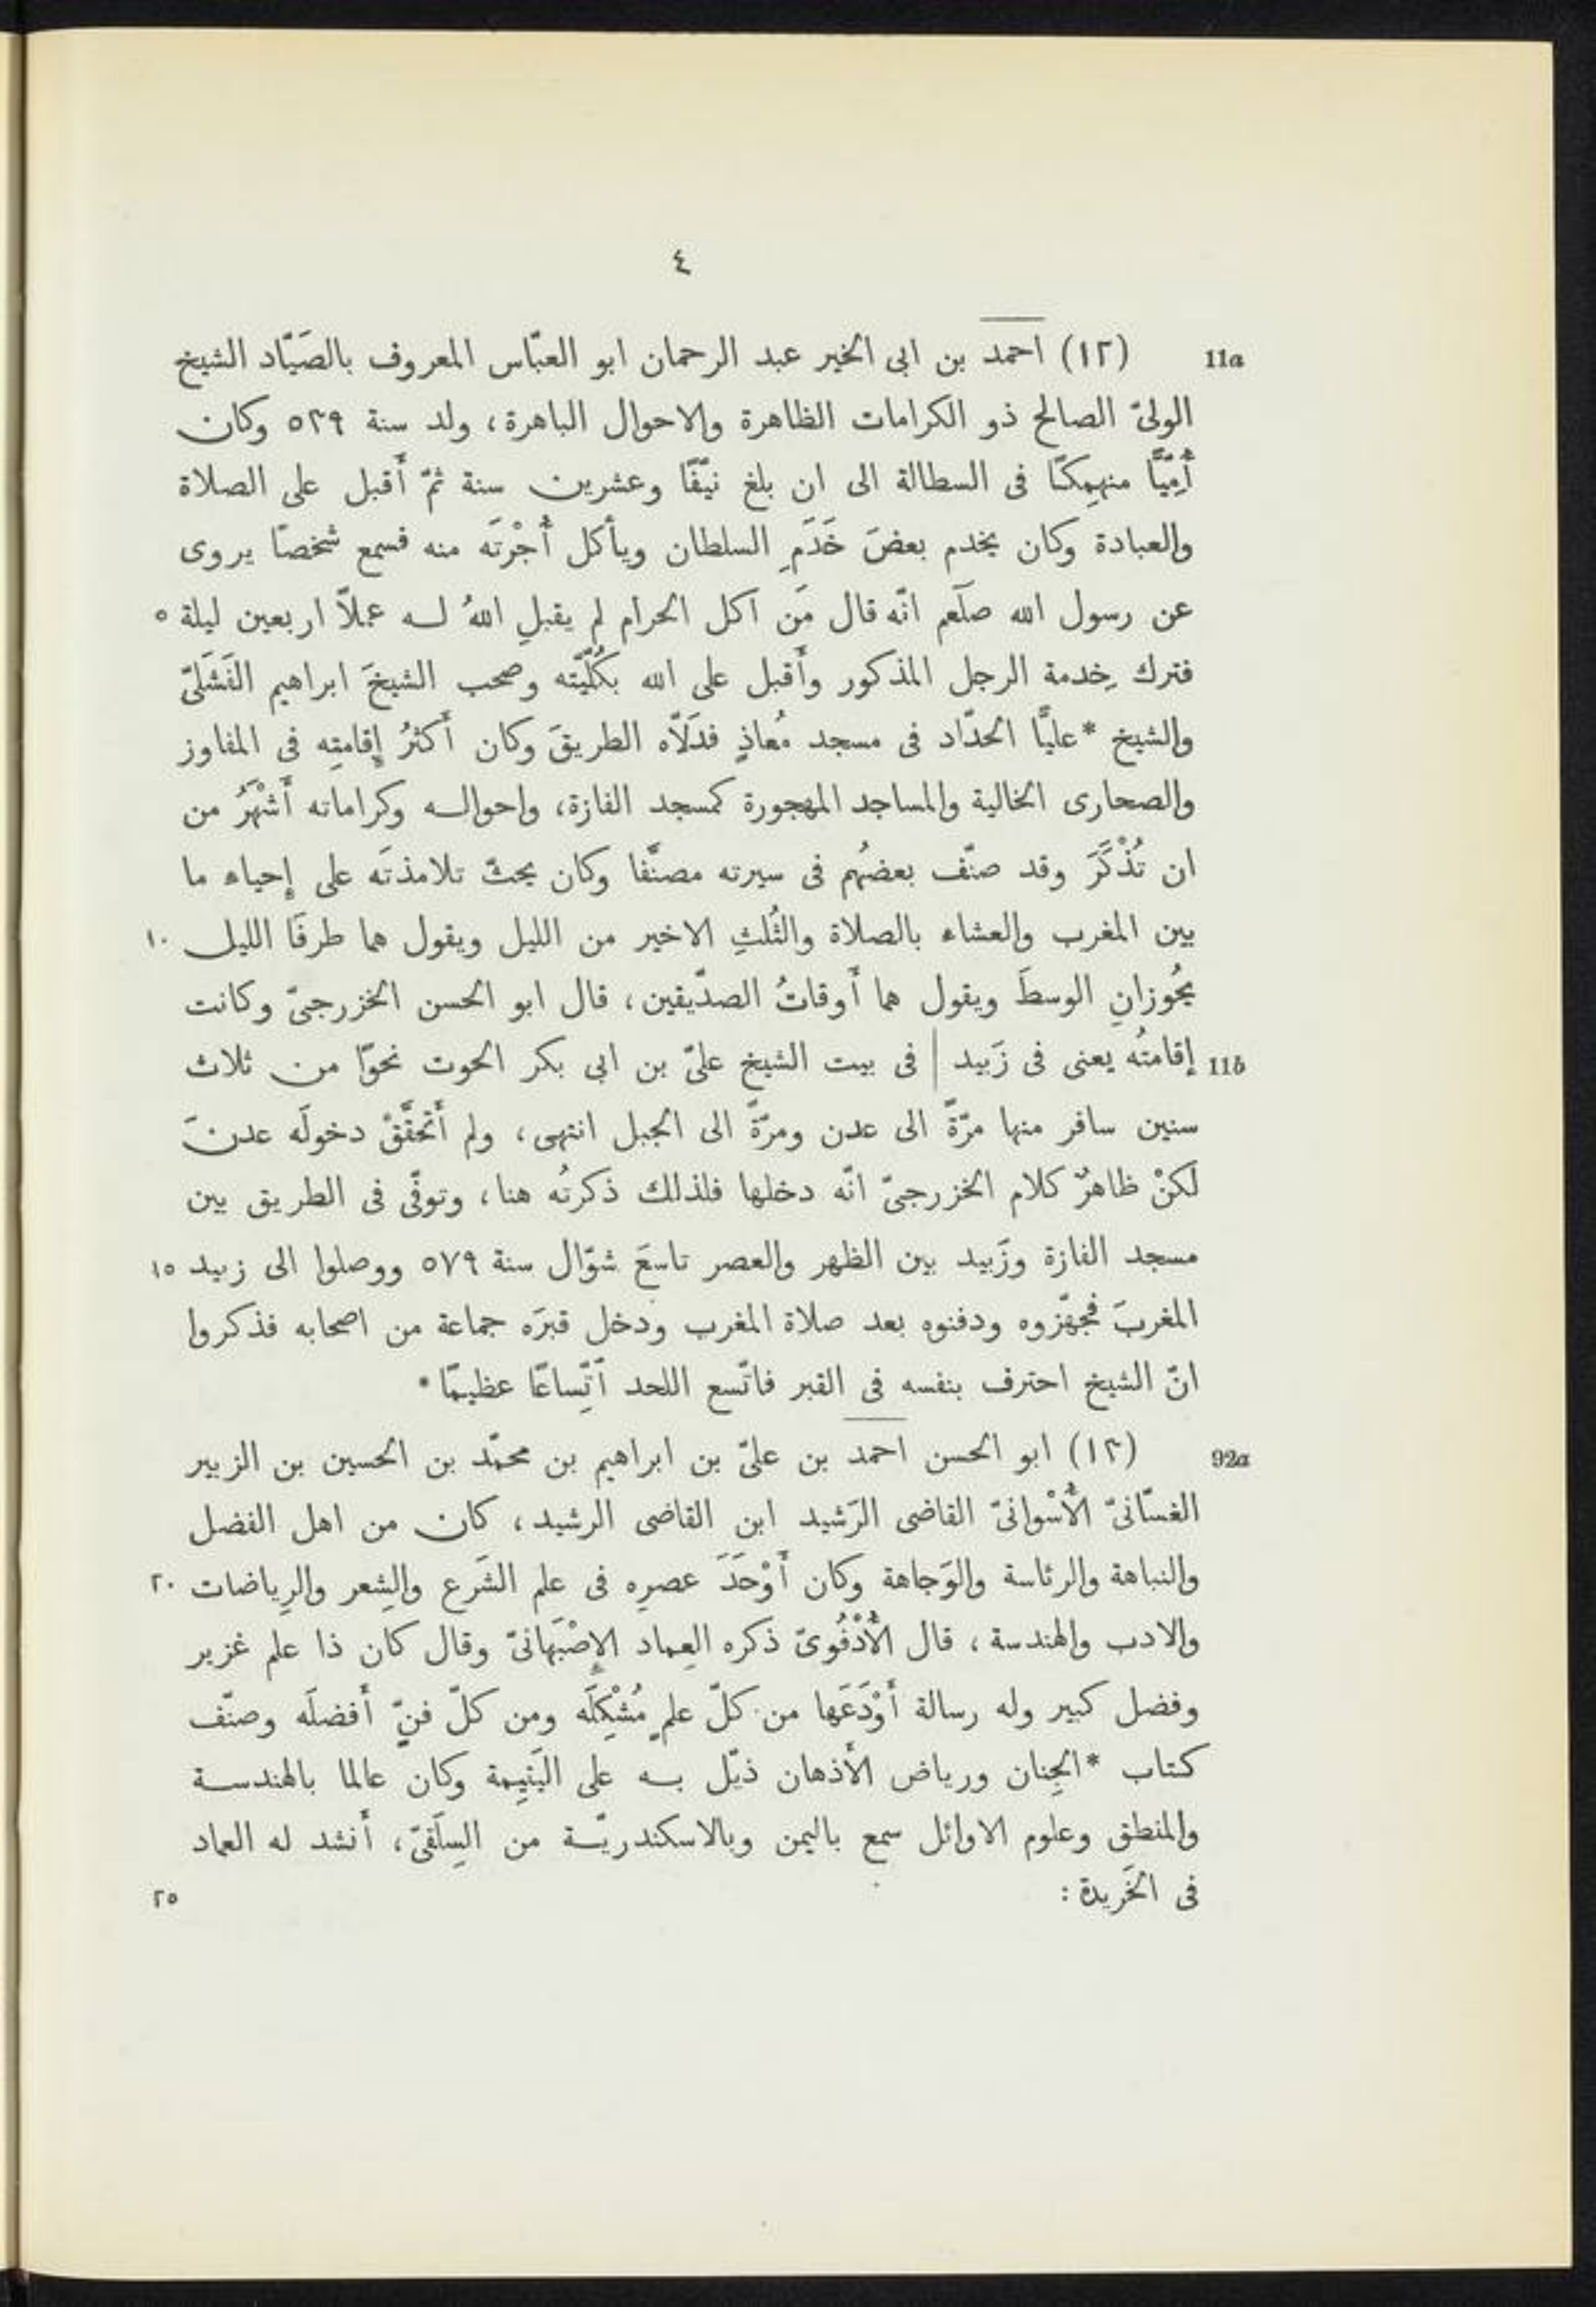 ٤
11a (١٢) احمد بن ابى الخير عبد الرحمان ابو العبّاس المعروف بالصَيّاد الشيخ
الولىّ الصالح ذو الكرامات الظاهرة والاحوال الباهرة، ولد سنة ٥٢٩ وكان
أُمِّيًّا منهمِكًا فى السطالة الى ان بلغ نيّفًا وعشرين سنة ثمّ أَقبل على الصلاة
والعبادة وكان يخدم بعضَ خَدَمِ السلطان ويأكل أُجْرَتَه منه فسمع شخصًا يروى
عن رسول الله صلّعم انّه قال مَن اكل الحرام لم يقبلِ اللهُ له عملاً اربعين ليلة ٥
فترك خِدمة الرجل المذكور وأَقبل على الله بكُلّيّته وصحب الشيخَ ابراهيم الفَشَلىّ
والشيخ *عليًّا الحدّاد فى مسجد مُعاذٍ فدَلّاه الطريقَ وكان أَكثرُ إقامتِه فى المفاوز
والصحارى الخالية والمساجد المهجورة كمسجد الفازة، واحواله وكراماته أَشْهَرُ من
ان تُذْكَرَ وقد صنّف بعضُهم فى سيرته مصنَّفا وكان يحثّ تلامذتَه على إحياء ما
بين المغرب والعشاء بالصلاة والثُلثِ الاخير من الليل ويقول هما طرفَا الليل ١٠
يحُوزانِ الوسطَ ويقول هما أَوقاتُ الصدّيقين، قال ابو الحسن الخزرجىّ وكانت
11b إقامتُه يعنى فى زَبيد | فى بيت الشيخ علىّ بن ابى بكر الحوت نحوًا من ثلاث
سنين سافر منها مرّةً الى عدن ومرّةً الى الجبل انتهى، ولم أَتحقَّقْ دخولَه عدنَ
لكنْ ظاهرُ كلام الخزرجىّ انّه دخلها فلذلك ذكرتُه هنا، وتوفّى فى الطريق بين
مسجد الفازة وزَبيد بين الظهر والعصر تاسعَ شوّال سنة ٥٧٩ ووصلوا الى زبيد ١٥
المغربَ فجهّزوه ودفنوه بعد صلاة المغرب ودخل قبرَه جماعة من اصحابه فذكروا
انّ الشيخ احترف بنفسه فى القبر فاتّسع اللحد اَتِّساعًا عظيمًا *
92a (١٣) ابو الحسن احمد بن علىّ بن ابراهيم بن محمّد بن الحسين بن الزبير
الغسّانىّ الأُسْوانىّ القاضى الرَشيد ابن القاضى الرشيد، كان من اهل الفضل
والنباهة والرئاسة والوَجاهة وكان أَوْحَدَ عصرِه فى علم الشَرع والشِعر والرِياضات ٢٠
والادب والهندسة، قال الأُدْفُوىّ ذكره العِماد الإصْبَهانىّ وقال كان ذا علم غزير
وفضل كبير وله رسالة أَوْدَعَها من كلّ علمٍ مُشْكِلَه ومن كلّ فنٍّ أَفضلَه وصنّف
كتاب *الجِنان ورياض الأَذهان ذيّل به على اليَتيمة وكان عالما بالهندسة
والمنطق وعلوم الاوائل سمع باليمن وبالاسكندريّة من السِلَفىّ، أَنشد له العماد
فى الخَريدة : ٢٥